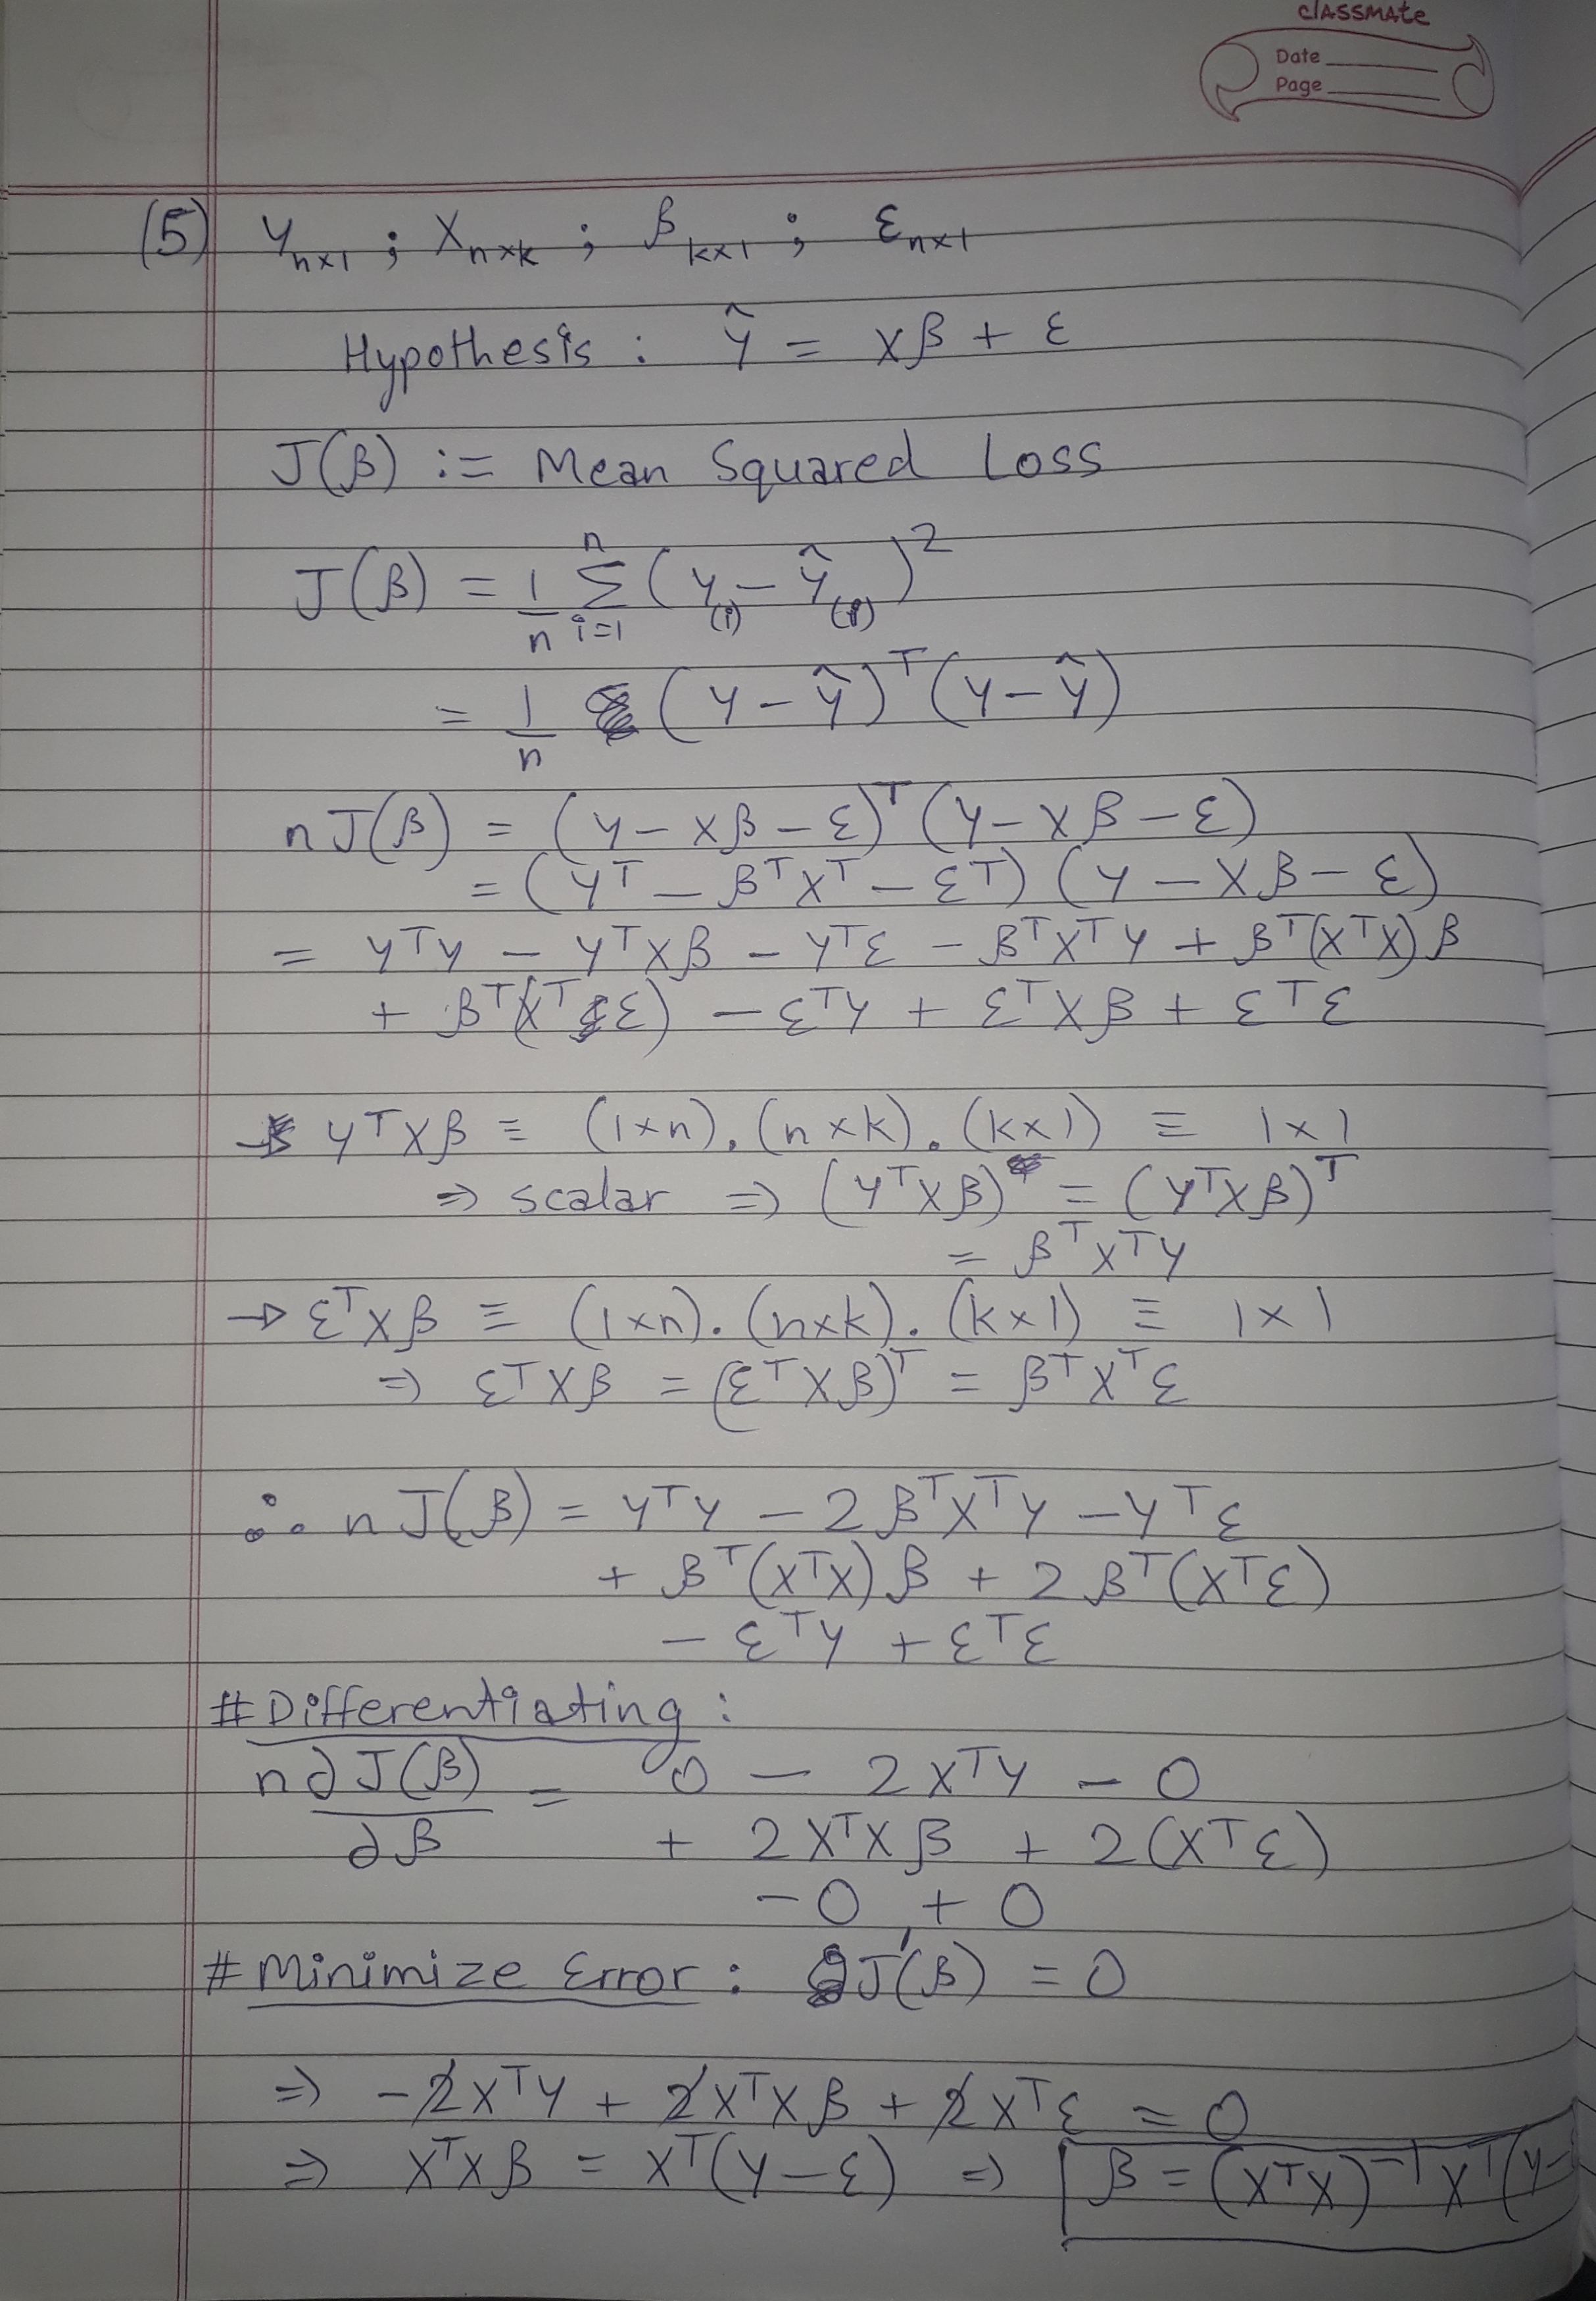 classmate
Date
Page
(5) Y_{n×1} ; X_{n×k} ; β_{k×1} ; ε_{n×1}
Hypothesis : Ŷ = Xβ + ε
J(β) := Mean Squared Loss
J(β) = 1/n Σ_{i=1}^{n} (Y_{(i)} − Ŷ_{(i)})^2
= 1/n (Y − Ŷ)^T (Y − Ŷ)
n J(β) = (Y − Xβ − ε)^T (Y − Xβ − ε)
= (Y^T − β^T X^T − ε^T) (Y − Xβ − ε)
= Y^T Y − Y^T Xβ − Y^T ε − β^T X^T Y + β^T (X^T X) β
+ β^T (X^T ε) − ε^T Y + ε^T Xβ + ε^T ε
→ Y^T Xβ ≡ (1×n). (n×k). (k×1) ≡ 1×1
⇒ scalar ⇒ (Y^T Xβ) = (Y^T Xβ)^T
= β^T X^T Y
→ ε^T Xβ ≡ (1×n). (n×k). (k×1) ≡ 1×1
⇒ ε^T Xβ = (ε^T Xβ)^T = β^T X^T ε
∴ n J(β) = Y^T Y − 2 β^T X^T Y − Y^T ε
+ β^T (X^T X) β + 2 β^T (X^T ε)
− ε^T Y + ε^T ε
# Differentiating :
n ∂J(β)/∂β = 0 − 2 X^T Y − 0
+ 2 X^T X β + 2 (X^T ε)
− 0 + 0
# Minimize Error : J'(β) = 0
⇒ −2 X^T Y + 2 X^T X β + 2 X^T ε = 0
⇒ X^T X β = X^T (Y − ε) ⇒ β = (X^T X)^{−1} X^T (Y −